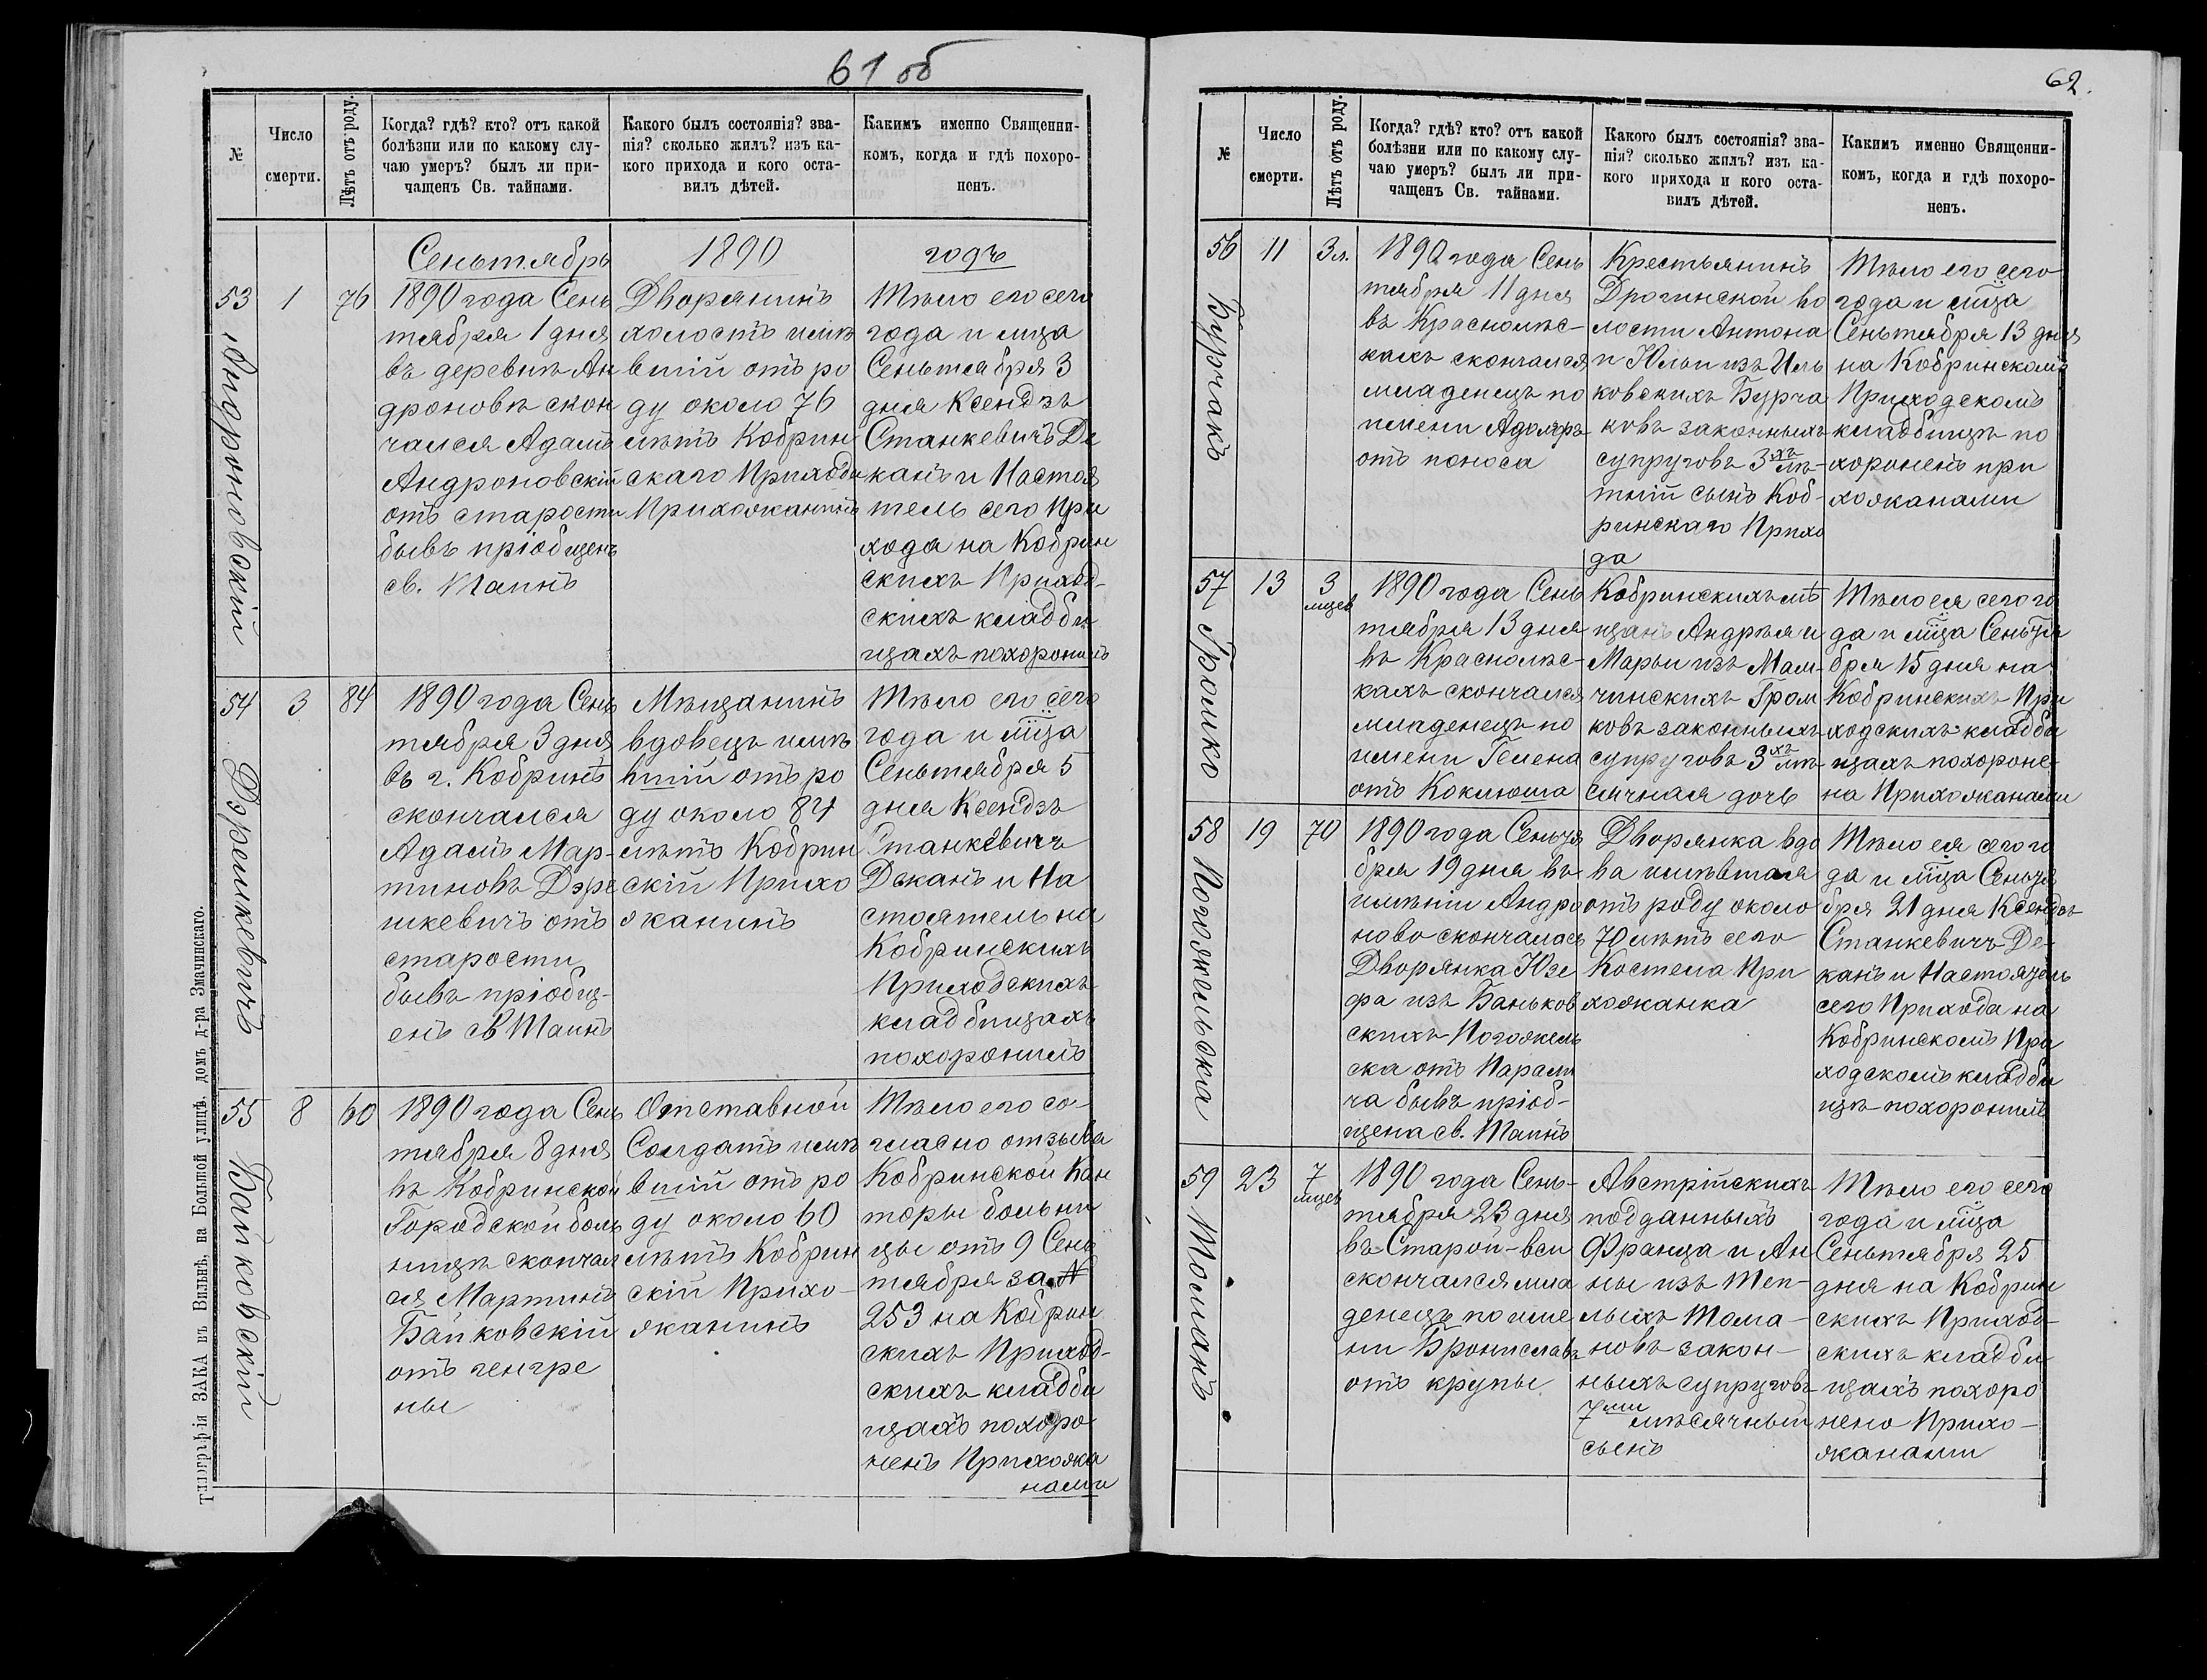 61 об
№
Число
смерти.
Лѣтъ отъ роду.
Когда? гдѣ? кто? отъ какой
болѣзни или по какому слу-
чаю умеръ? былъ ли при-
чащенъ Св. тайнами.
Какого былъ состоянія? зва-
нія? сколько жилъ? изъ ка-
кого прихода и кого оста-
вилъ дѣтей.
Какимъ именно Священни-
комъ, когда и гдѣ похоро-
ненъ.
Сеньтябрь 1890 годъ
53
Андроновскій
1
76
1890 года Сень
тября 1 дня
въ деревнѣ Ан
дроновѣ скон
чался Адамъ
Андроновскій
отъ старости
бывъ пріобщенъ
св. Таинъ
Дворянинъ
холостъ имѣ
вшій отъ ро
ду около 76
лѣтъ Кобрин
скаго Прихода
Прихожанинъ
Тѣло его сего
года и мца
Сеньтября 3
дня Ксендзъ
Станкевичъ Де
канъ и Настоя
тель сего При
хода на Кобрин
скихъ Приход-
скихъ кладби
щахъ похоронилъ
54
Дэремкевичъ
3
84
1890 года Сень
тября 3 дня
въ г. Кобринѣ
скончался
Адамъ Мар-
тиновъ Дэре
мкевичъ отъ
старости
бывъ пріобщ-
енъ св Таинъ
Мѣщанинъ
вдовецъ имѣ
вшій отъ ро
ду около 84
лѣтъ Кобрин
скій Прихо
жанинъ
Тѣло его сего
года и мца
Сеньтября 5
дня Ксендзъ
Станкевичъ
Деканъ и На
стоятель на
Кобринскихъ
Приходскихъ
кладбищахъ
похоронилъ
55
Байковскій
8
60
1890 года Сень
тября 8 дня
въ Кобринской
Городской боль
ницѣ скончал
ся Мартинъ
Байковскій
отъ генгре
ны
Отставной
Солдатъ имѣ
вшій отъ ро
ду около 60
лѣтъ Кобрин
скій Прихо-
жанинъ
Тѣло его со-
гласно отзыва
Кобринской Кан
торы больни
цы отъ 9 Сень
тября за N
253 на Кобрин
скихъ Приход-
скихъ кладби
щахъ похоро
ненъ Прихожа
нами
Типографія ЗАКА въ Вильнѣ, на Большой улицѣ, домъ д-ра Змачинскаго.
62.
№
Число
смерти.
Лѣтъ отъ роду.
Когда? гдѣ? кто? отъ какой
болѣзни или по какому слу-
чаю умеръ? былъ ли при-
чащенъ Св. тайнами.
Какого былъ состоянія? зва-
нія? сколько жилъ? изъ ка-
кого прихода и кого оста-
вилъ дѣтей.
Какимъ именно Священни-
комъ, когда и гдѣ похоро-
ненъ.
56
Бурчакъ
11
3 л.
1890 года Сень
тября 11 дня
въ Краснолѣс-
кахъ скончался
младенецъ по
имени Адольфъ
отъ поноса
Крестьянинъ
Дрогинской во
лости Антона
и Юльи изъ Иль
ковскихъ Бурча
ковъ законныхъ
супруговъ 3хъ лѣ-
тній сынъ Коб-
ринскаго Прихо
да
Тѣло его сего
года и мца
Сеньтября 13 дня
на Кобринскомъ
Приходскомъ
кладбищѣ по
хороненъ при
хожанами
57
Громко
13
3
мцев
1890 года Сень
тября 13 дня
въ Краснолѣс-
кахъ скончался
младенецъ по
имени Гелена
отъ Коклюша
Кобринскихъ мѣ
щанъ Андрея и
Марьи изъ Мам-
чинскихъ Гром
ковъ законныхъ
супруговъ 3хъ мѣ-
сячная дочь
Тѣло ея сего го
да и мца Сеньтя
бря 15 дня на
Кобринскихъ При
ходскихъ кладби
щахъ похороне-
на Прихожанами
58
Погожельска
19
70
1890 года Сеньтя
бря 19 дня въ
имѣніи Андро
ново скончалась
Дворянка Юзе
фа изъ Баньков
скихъ Погожель
ска отъ Парали
ча бывъ пріоб-
щена св. Таинъ
Дворянка вдо
ва имѣвшая
отъ роду около
70 лѣтъ сего
Костела При
хожанка
Тѣло ея сего го
да и мца Сеньтя
бря 21 дня Ксендзъ
Станкевичъ Де-
канъ и Настоятель
сего Прихода на
Кобринскомъ При
ходскомъ кладби
щѣ похоронилъ
59
Томанъ
23
7
мцев
1890 года Сень-
тября 23 дня
въ Старой-вси
скончался мла
денецъ по име
ни Брониславъ
отъ крупы
Австрійскихъ
подданныхъ
Франца и Ан
ны изъ Теп-
лыхъ Тома-
новъ закон-
ныхъ супруговъ
7ми мѣсячный
сынъ
Тѣло его сего
года и мца
Сеньтября 25
дня на Кобрин
скихъ Приход-
скихъ кладби
щахъ похоро
нено Прихо-
жанами